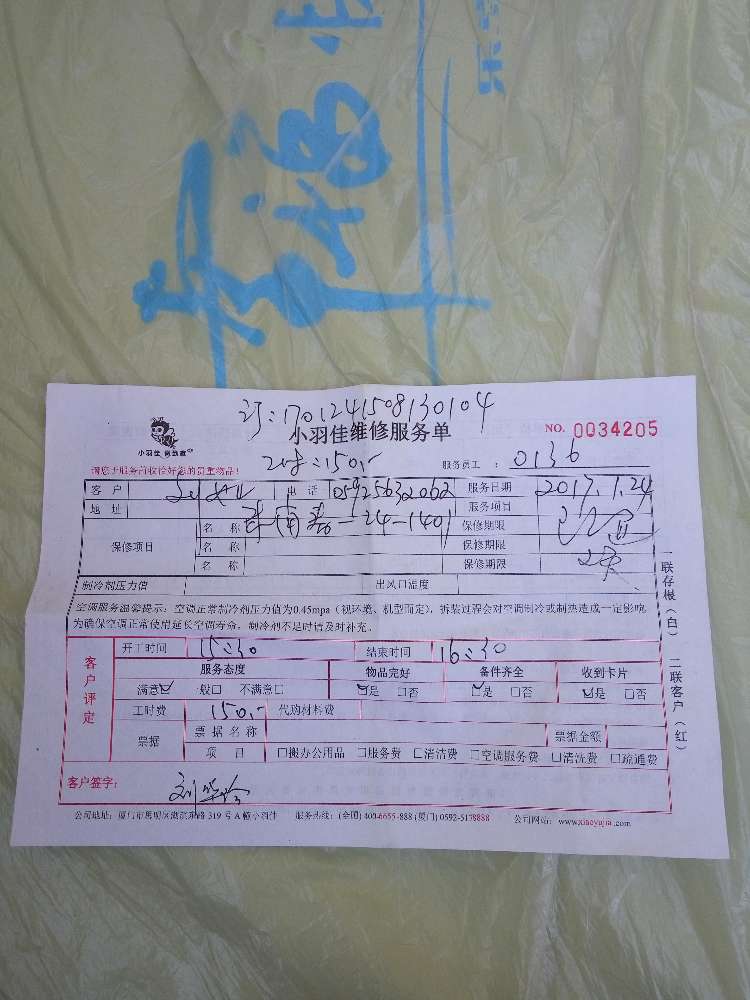 幸福
订:1701241508130104
小羽佳维修服务单
NO. 0034205
小羽佳 易到家
请您于服务前收拾好您的贵重物品!
150,-
服务员工 : 0136
客 户 电 话 05925632062 服务日期 2017.1.24
地 址 24-1401 服务项目
保修项目 名 称 保修期限
名 称 保修期限
名 称 保修期限
制冷剂压力值 出风口温度
空调服务温馨提示:空调正常制冷剂压力值为0.45mpa(视环境、机型而定),拆装过程会对空调制冷或制热造成一定影响,
为确保空调正常使用延长空调寿命,制冷剂不足时请及时补充。
客户评定
开工时间 15:30 结束时间 16:30
服务态度 物品完好 备件齐全 收到卡片
满意☑ 一般□ 不满意□ ☑是 □否 ☑是 □否 ☑是 □否
工时费 150,- 代购材料费
票据 票 据 名 称 票据金额
项 目 □搬办公用品 □服务费 □清洁费 □空调服务费 □清洗费 □疏通费
客户签字:
公司地址:厦门市思明区湖滨东路 319 号 A 幢 服务热线:(全国) 400-6655-888 (厦门) 0592-5178888 公司网站:www.xiaoyujia.com
一联存根(白) 二联客户(红)